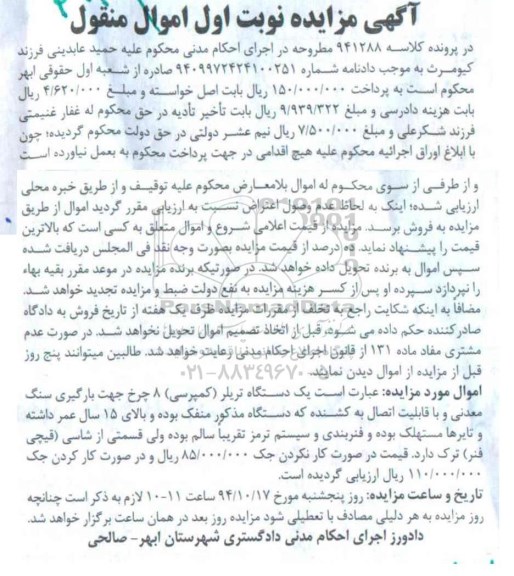 آگهی مزایده نوبت اول اموال منقول
در پرونده کلاسه ۹۴۱۲۸۸ مطروحه در اجرای احکام مدنی محکوم علیه حمید عابدینی فرزند
کیومرث به موجب دادنامه شماره ۹۴۰۹۹۷۲۴۲۴۱۰۰۲۵۱ صادره از شعبه اول حقوقی ابهر
محکوم است به پرداخت ۱۵۰/۰۰۰/۰۰۰ ریال بابت اصل خواسته و مبلغ ۴/۶۲۰/۰۰۰ ریال
بابت هزینه دادرسی و مبلغ ۹/۹۳۹/۳۲۲ ریال بابت تأخیر تأدیه در حق محکوم له غفار غنیمتی
فرزند شکرعلی و مبلغ ۷/۵۰۰/۰۰۰ ریال نیم عشر دولتی در حق دولت محکوم گردیده؛ چون
با ابلاغ اوراق اجرائیه محکوم علیه هیچ اقدامی در جهت پرداخت محکوم به بعمل نیاورده است
و از طرفی از سوی محکوم له اموال بلامعارض محکوم علیه توقیف و از طریق خبره محلی
ارزیابی شده؛ اینک به لحاظ عدم وصول اعتراض نسبت به ارزیابی مقرر گردید اموال از طریق
مزایده به فروش برسد. مزایده از قیمت اعلامی شروع و اموال متعلق به کسی است که بالاترین
قیمت را پیشنهاد نماید. ده درصد از قیمت مزایده بصورت وجه نقد فی المجلس دریافت شده
سپس اموال به برنده تحویل داده خواهد شد. در صورتیکه برنده مزایده در موعد مقرر بقیه بهاء
را نپردازد سپرده او پس از کسر هزینه مزایده به نفع دولت ضبط و مزایده تجدید خواهد شد.
مضافاً به اینکه شکایت راجع به تخلف از مقررات مزایده ظرف یک هفته از تاریخ فروش به دادگاه
صادرکننده حکم داده می شود، قبل از اتخاذ تصمیم اموال تحویل نخواهد شد. در صورت عدم
مشتری مفاد ماده ۱۳۱ از قانون اجرای احکام مدنی رعایت خواهد شد. طالبین میتوانند پنج روز
قبل از مزایده از اموال دیدن نمایند.
۰۲۱-۸۸۳۴۹۶۷۰
اموال مورد مزایده: عبارت است یک دستگاه تریلر (کمپرسی) ۸ چرخ جهت بارگیری سنگ
معدنی و با قابلیت اتصال به کشنده که دستگاه مذکور منفک بوده و بالای ۱۵ سال عمر داشته
و تایرها مستهلک بوده و فنربندی و سیستم ترمز تقریباً سالم بوده ولی قسمتی از شاسی (قیچی
فنر) ترک دارد. قیمت در صورت کار نکردن جک ۸۵/۰۰۰/۰۰۰ ریال و در صورت کار کردن جک
۱۱۰/۰۰۰/۰۰۰ ریال ارزیابی گردیده است.
تاریخ و ساعت مزایده: روز پنجشنبه مورخ ۹۴/۱۰/۱۷ ساعت ۱۱-۱۰ لازم به ذکر است چنانچه
روز مزایده به هر دلیلی مصادف با تعطیلی شود مزایده روز بعد در همان ساعت برگزار خواهد شد.
دادورز اجرای احکام مدنی دادگستری شهرستان ابهر- صالحی